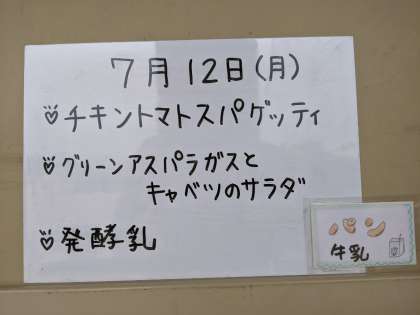 7月12日(月)
チキントマトスパゲッティ
グリーンアスパラガスと
キャベツのサラダ
発酵乳
パン
牛乳